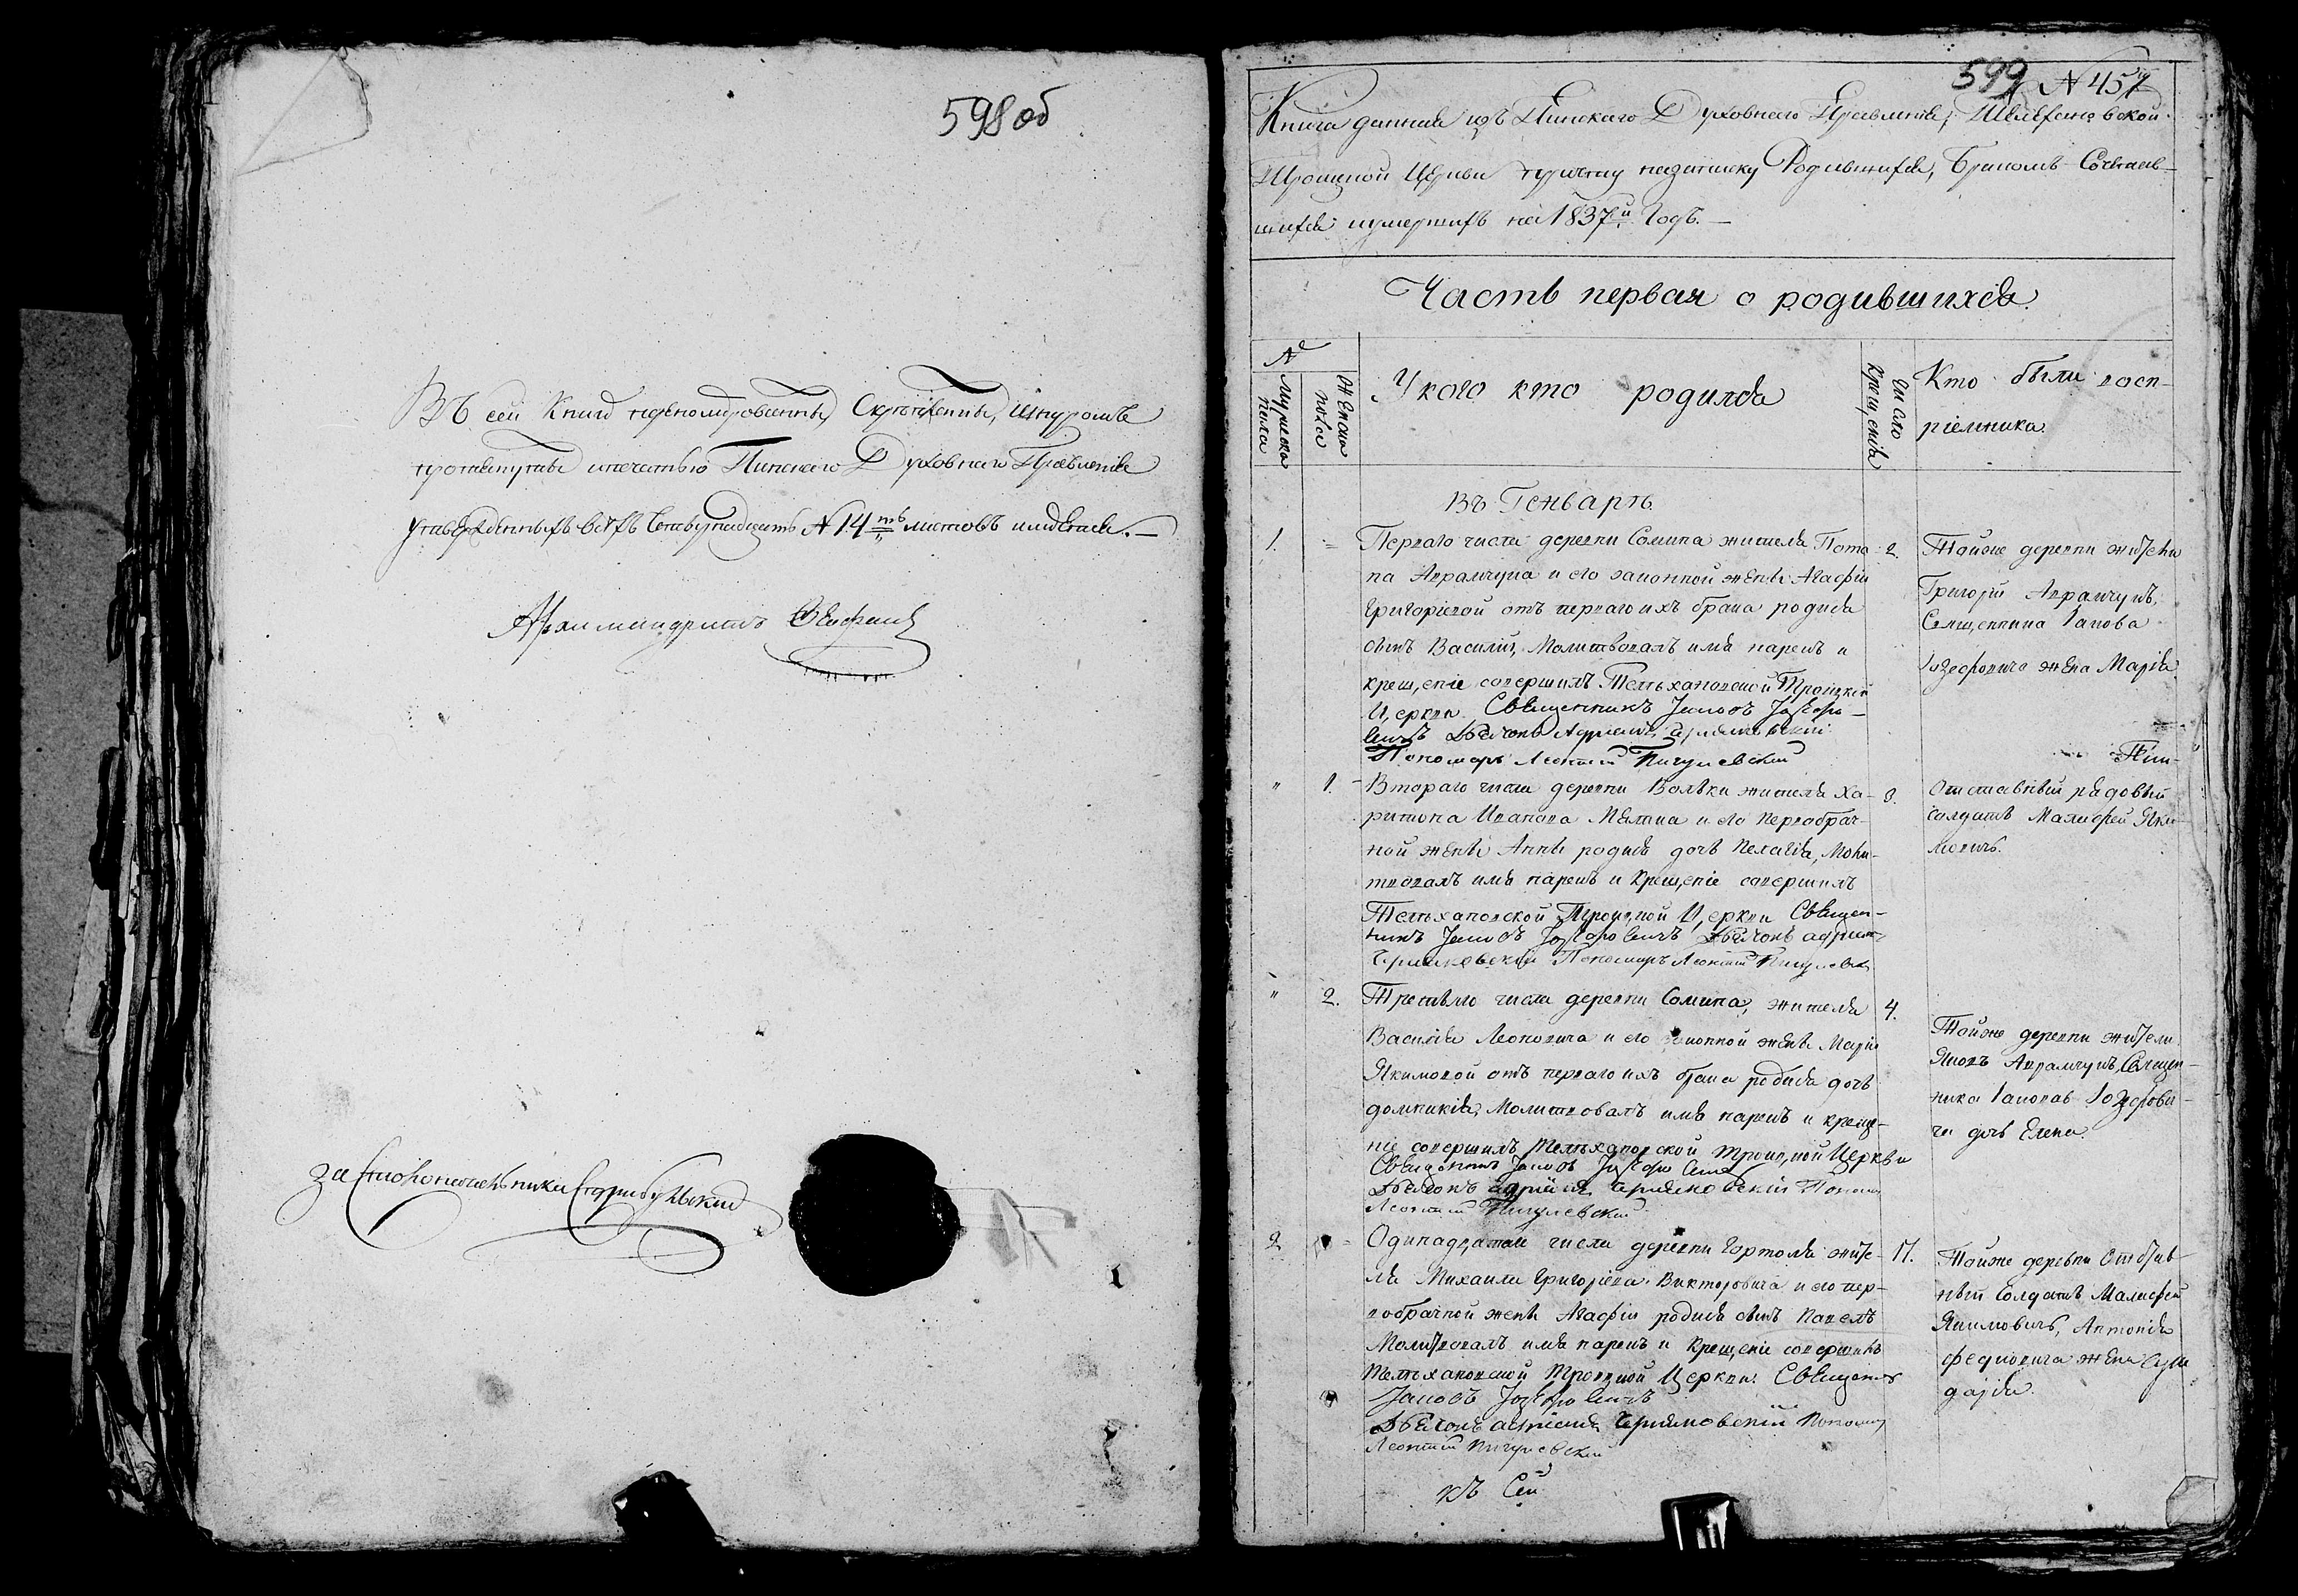 598 об
Въ сей Книгѣ перенумерованныхъ Скрѣпленныхъ, Шнуромъ
и печатью Пинскаго Духовнаго Правленія
утвержденныхъ всѣхъ Четырнадцать N 14ть листовъ имѣется.—
Архимандритъ
за Столоначальника
599 N 457й
Книга данная изъ Пинскаго Духовнаго Правленія, Телехановской
Троицкой Церкви причту на записку Родившихся, Бракомъ Сочетав-
шихся и умершихъ на 1837й Годъ.—
Часть первая о родившихся.
N
Мужеска
пола
Женска
пола
У кого кто родился
Число
Крещенія
Кто были восп-
ріемники
Въ Генваръ.
1. = Перваго числа деревни Сомина жителя Пота-
па Аврамчука и его законной жены Агафіи
Григоріевой отъ перваго ихъ брака родися
сынъ Василій, Молитвовалъ имя нарекъ и
крещеніе совершилъ Телехановской Троицкой
Церкви Священникъ Іаковъ Іозефо-
вичъ Дьячокъ Адріанъ
Пономарь Леонтій Пигулевскій
2.
Тойже деревни жители
Григорій Аврамчукъ,
Священника Іакова
Іозефовича жена Марія.
Пин-
" 1. Втораго числа деревни Вольки жителя Ха-
ритона Иванова и его первобрач-
ной жены Анны родися дочь Пелагія, Моли-
твовалъ имя нарекъ и Крещеніе совершилъ
Телехановской Троицкой Церкви Священ-
никъ Іаковъ Іозефовичъ Дьячокъ Адріанъ
Пономарь Леонтій Пигулевскій
3.
Отставный рядовый
солдатъ Малафей Яки-
мовичъ.
" 2. Третьяго числа деревни Сомина, жителя
Василія Леоновича и его законной жены Маріи
Якимовой отъ перваго ихъ брака родися дочь
Домникія, Молитвовалъ имя нарекъ и креще-
ніе совершилъ Телехановской Троицкой Церкви
Священникъ Іаковъ Іозефовичъ
Дьячокъ Адріанъ Пономарь
Леонтій Пигулевскій
4.
Тойже деревни жители
Яковъ Аврамчукъ, Священ-
ника Іакова Іозефови-
ча дочь Елена.
2 = Одинадцатаго числа деревни Гортоля жите-
ля Михаила Григоріева Викторовича и его пер-
вобрачной жены Агафіи родися сынъ Павелъ
Молитвовалъ имя нарекъ и Крещеніе совершилъ
Телехановской Троицкой Церкви Священникъ
Іаковъ Іозефовичъ
Дьячокъ Адріанъ Пономарь
Леонтій Пигулевскій
17.
Тойже деревни Отстав-
ный Солдатъ Малафей
Якимовичъ, Антонія
Федковича жена
къ Сей